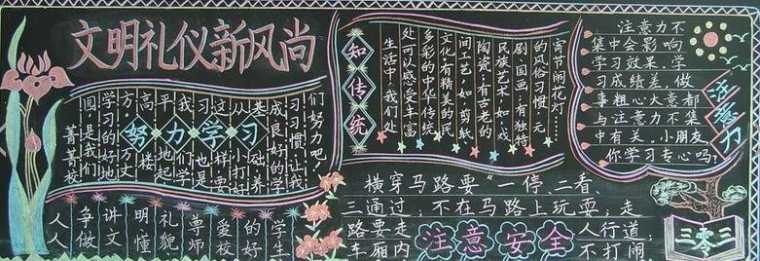 文明礼仪新风尚
努力学习
菁菁校
园,是我们
学习的好地
方,万丈
高楼
平地起
我们学
习也是
这样要
从打好
基础养
成良好的学
习习惯,让我
们努力吧!
人人
争做
讲文
明懂
礼貌
尊师
爱校
的好
学生
知传统
生活中,我们处
处可以感受丰富
多彩的中华传统
文化:有精美的民
间工艺,如:剪纸
陶瓷;有古老的
民族艺术,如:戏
剧、国画;有独特
的风俗习惯,元
宵节闹花灯……
注意力
注意力不
集中会影响
学习效果、学
习成绩差,做
事粗心大意都
与注意力不集
中有关,小朋友
你学习专心吗?
横穿马路要:一停、二看、
三通过,不在马路上玩耍,走
路要走人行道,
车厢内不打闹
注意安全
三零三